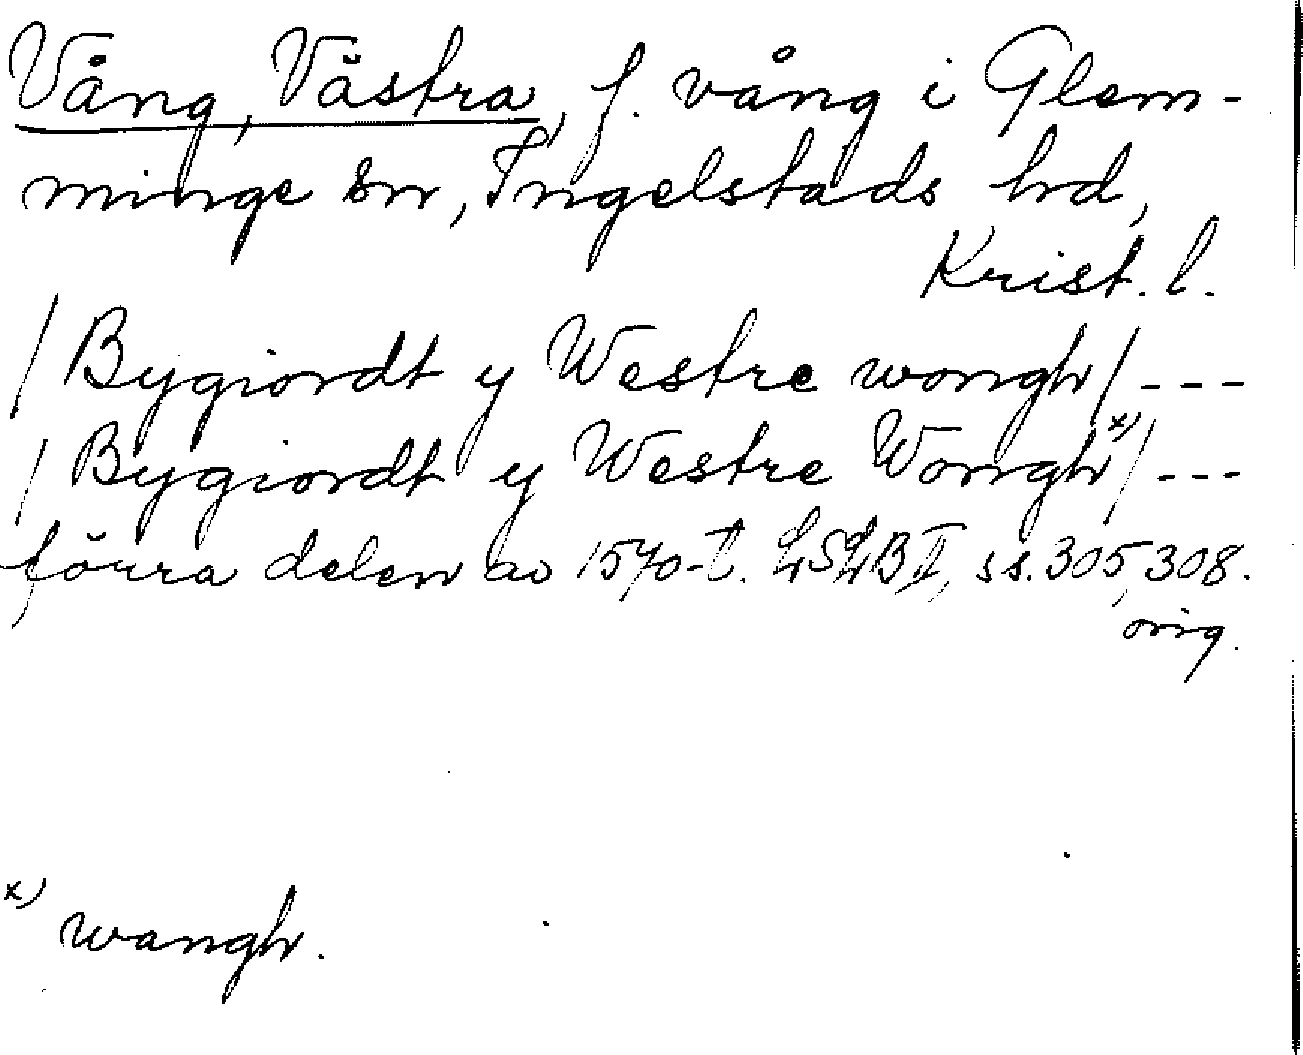 Vång, Västra, f. vång i Glem-
minge sn, Ingelstads hd,
Krist. l.
/ Bygiordt y Westre wongh / - - -
/ Bygiordt y Westre Wongh x) / - - -
förra delen av 1570-t. LSLB II, ss. 305, 308.
orig.
x) wangh.